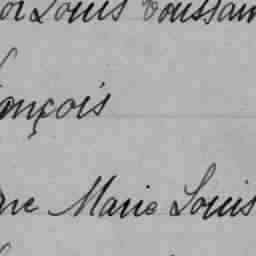 Louis Toussain
ançois
re Marie Louis